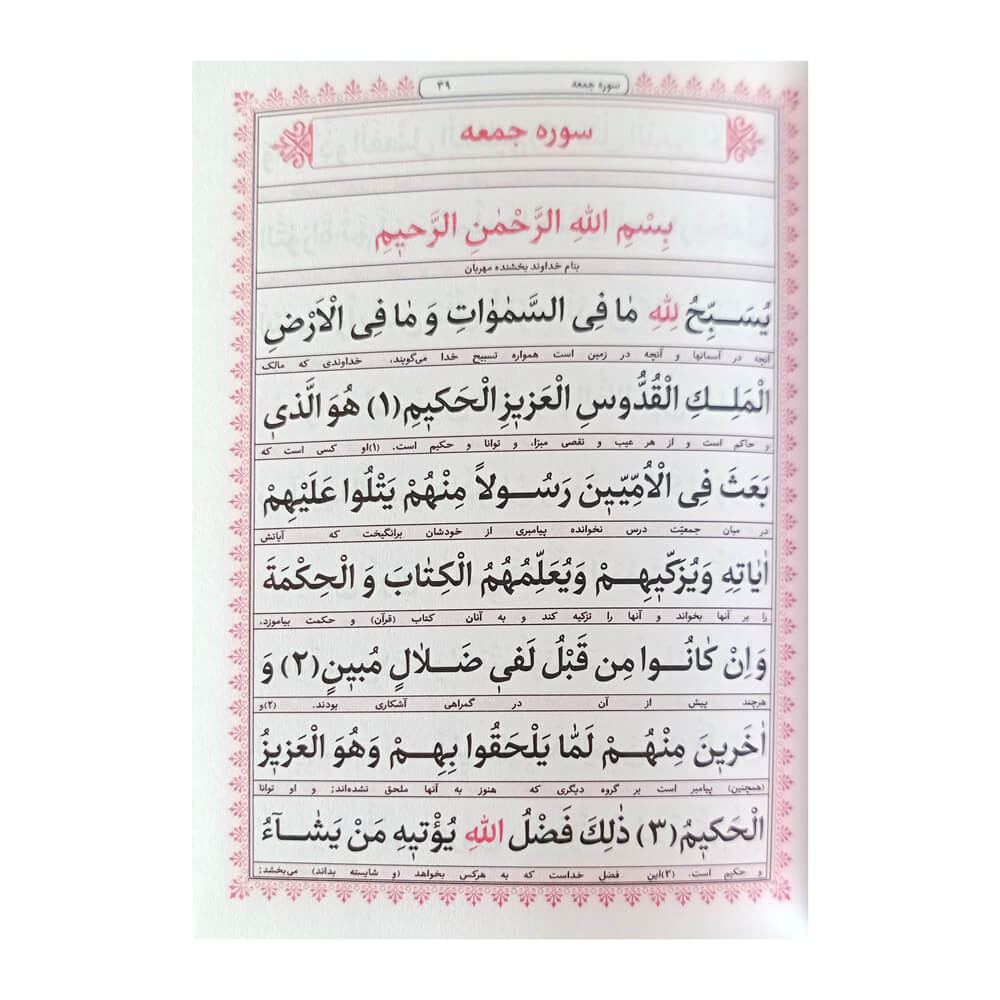 سوره جمعه
۳۹
سوره جمعه
بِسْمِ اللهِ الرَّحْمٰنِ الرَّحیٖمِ
بنام خداوند بخشنده مهربان
یُسَبِّحُ لِلّٰهِ مٰا فِی السَّمٰوٰاتِ وَ مٰا فِی الْاَرْضِ
آنچه در آسمانها و آنچه در زمین است همواره تسبیح خدا می‌گویند، خداوندی که مالک
الْمَلِكِ الْقُدُّوسِ الْعَزیٖزِ الْحَکیٖمِ (۱) هُوَ الَّذیٖ
و حاکم است و از هر عیب و نقصی مبرّا، و توانا و حکیم است. (۱)او کسی است که
بَعَثَ فِی الْاُمِّیّیٖنَ رَسُولاً مِنْهُمْ یَتْلُوا عَلَیْهِمْ
در میان جمعیّت درس نخوانده پیامبری از خودشان برانگیخت که آیاتش
اٰیٰاتِهِ وَیُزَکّیٖهِمْ وَیُعَلِّمُهُمُ الْکِتٰابَ وَ الْحِکْمَةَ
را بر آنها بخواند و آنها را تزکیه کند و به آنان کتاب (قرآن) و حکمت بیاموزد،
وَاِنْ کٰانُوا مِن قَبْلُ لَفیٖ ضَلٰالٍ مُبیٖنٍ (۲) وَ
هرچند پیش از آن در گمراهی آشکاری بودند. (۲)و
اٰخَریٖنَ مِنْهُمْ لَمّٰا یَلْحَقُوا بِهِمْ وَهُوَ الْعَزیٖزُ
(همچنین) پیامبر است بر گروه دیگری که هنوز به آنها ملحق نشده‌اند؛ و او توانا
الْحَکیٖمُ (۳) ذٰلِكَ فَضْلُ اللهِ یُؤْتیٖهِ مَنْ یَشٰآءُ
و حکیم است. (۳)این فضل خداست که به هرکس بخواهد (و شایسته بداند) می‌بخشد؛